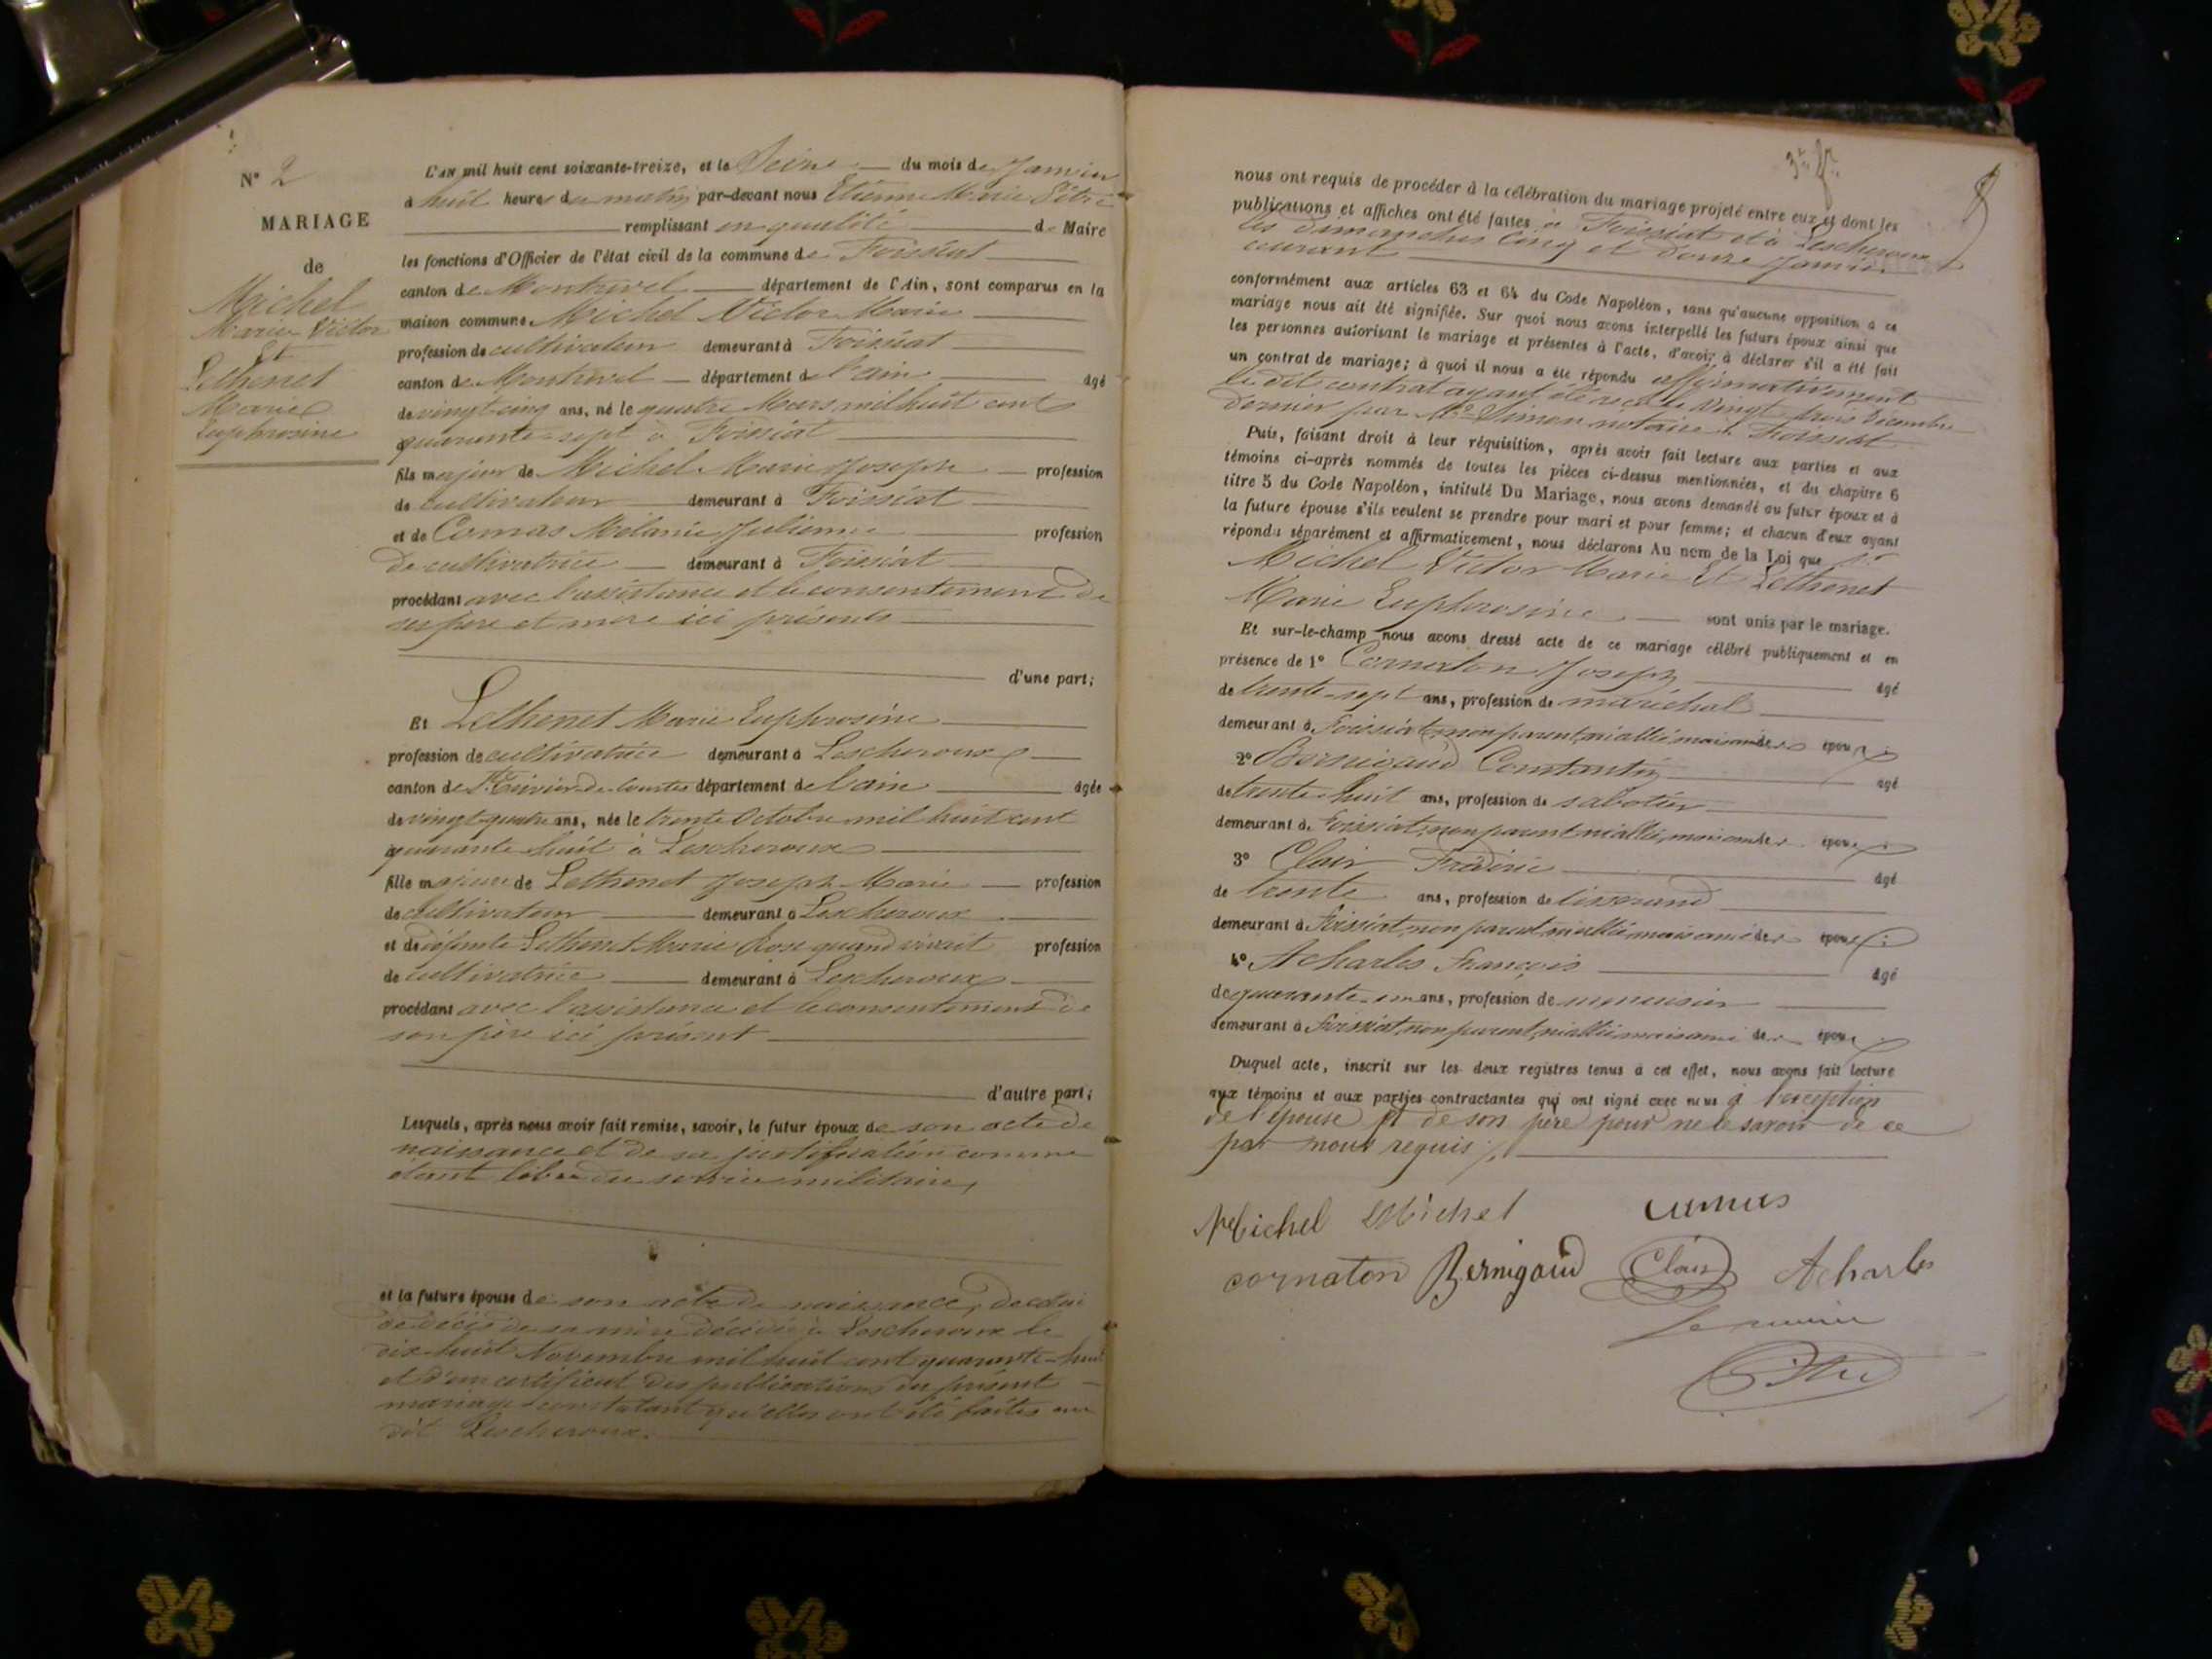 N° 2
MARIAGE
de
Michel
Marie Victor
Et
Lethenet
Marie
Euphrosine
L'an mil huit cent soixante-treize, et le Seize du mois de Janvier
à huit heures du matin par-devant nous Etienne Marie Pitre
remplissant en qualité de Maire
les fonctions d'Officier de l'état civil de la commune de Foissiat
canton de Montrevel département de l'Ain, sont comparus en la
maison commune Michel Victor Marie
profession de cultivateur demeurant à Foissiat
canton de Montrevel département de l'ain âgé
de vingt-cinq ans, né le quatre Mars mil huit cent
quarante-sept à Foissiat
fils majeur de Michel Marie Joseph profession
de cultivateur demeurant à Foissiat
et de Comas Mélanie Julienne profession
de cultivatrice demeurant à Foissiat
procédant avec l'assistance et le consentement de
ses père et mère ici présents
d'une part;
Et Lethenet Marie Euphrosine
profession de cultivatrice demeurant à Lescheroux
canton de St Trivier-de-Courtes département de l'ain âgée
de vingt-quatre ans, née le trente Octobre mil huit cent
quarante huit à Lescheroux
fille majeure de Lethenet Joseph Marie profession
de cultivateur demeurant à Lescheroux
et de défunte Lethenet Marie Rose quand vivait profession
de cultivatrice demeurant à Lescheroux
procédant avec l'assistance et le consentement de
son père ici présent
d'autre part;
Lesquels, après nous avoir fait remise, savoir, le futur époux de son acte de
naissance et de sa justification comme
étant libéré du service militaire,
et la future épouse de son acte de naissance, de celui
de décès de sa mère décédée à Lescheroux le
dix-huit Novembre mil huit cent quarante-huit
et d'un certificat des publications du présent
mariage constatant qu'elles ont été faites au
dit Lescheroux.
nous ont requis de procéder à la célébration du mariage projeté entre eux et dont les
publications et affiches ont été faites à Foissiat et à Lescheroux
les dimanches cinq et douze Janvier
courant
conformément aux articles 63 et 64 du Code Napoléon, sans qu'aucune opposition à ce
mariage nous ait été signifiée. Sur quoi nous avons interpellé les futurs époux ainsi que
les personnes autorisant le mariage et présentes à l'acte, d'avoir à déclarer s'il a été fait
un contrat de mariage; à quoi il nous a été répondu affirmativement
le dit contrat ayant été reçu le vingt trois Décembre
dernier par Me Simon notaire à Foissiat
Puis, faisant droit à leur réquisition, après avoir fait lecture aux parties et aux
témoins ci-après nommés de toutes les pièces ci-dessus mentionnées, et du chapitre 6
titre 5 du Code Napoléon, intitulé Du Mariage, nous avons demandé au futur époux et à
la future épouse s'ils veulent se prendre pour mari et pour femme; et chacun d'eux ayant
répondu séparément et affirmativement, nous déclarons Au nom de la Loi que
Michel Victor Marie Et Lethenet
Marie Euphrosine sont unis par le mariage.
Et sur-le-champ nous avons dressé acte de ce mariage célébré publiquement et en
présence de 1° Cornaton Joseph âgé
de trente-sept ans, profession de maréchal
demeurant à Foissiat non parent, ni allié mais ami des époux
2° Bernigaud Constantin âgé
de trente-huit ans, profession de sabotier
demeurant à Foissiat, non parent ni allié, mais ami des époux
3° Clair Frédéric âgé
de trente ans, profession de tisserand
demeurant à Foissiat, non parent, ni allié mais ami des époux
4° Acharles François âgé
de quarante-un ans, profession de menuisier
demeurant à Foissiat, non parent, ni allié mais ami des époux
Duquel acte, inscrit sur les deux registres tenus à cet effet, nous avons fait lecture
aux témoins et aux parties contractantes qui ont signé avec nous à l'exception
de l'épouse et de son père pour ne le savoir de ce
par nous requis
Michel Michel Comas
cornaton Bernigaud Clair Acharles
Le maire
Pitre